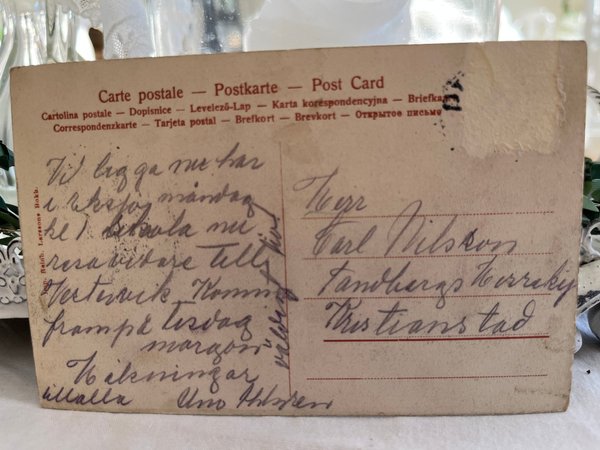 Carte postale — Postkarte — Post Card
Cartolina postale — Dopisnice — Levelező-Lap — Karta korespondencyjna — Briefka
Correspondenzkarte — Tarjeta postal — Brefkort — Brevkort — Открытое письмо
Vi ligga nu här
i Eksjö måndag
kl 1 skola nu
resa vidare till
Vestervik Komm
fram på tisdag
morgon
Hälsningar
till alla Uno
Herr
Carl Nilsson
Sandbergs
Kristianstad
Larssons Bokh.